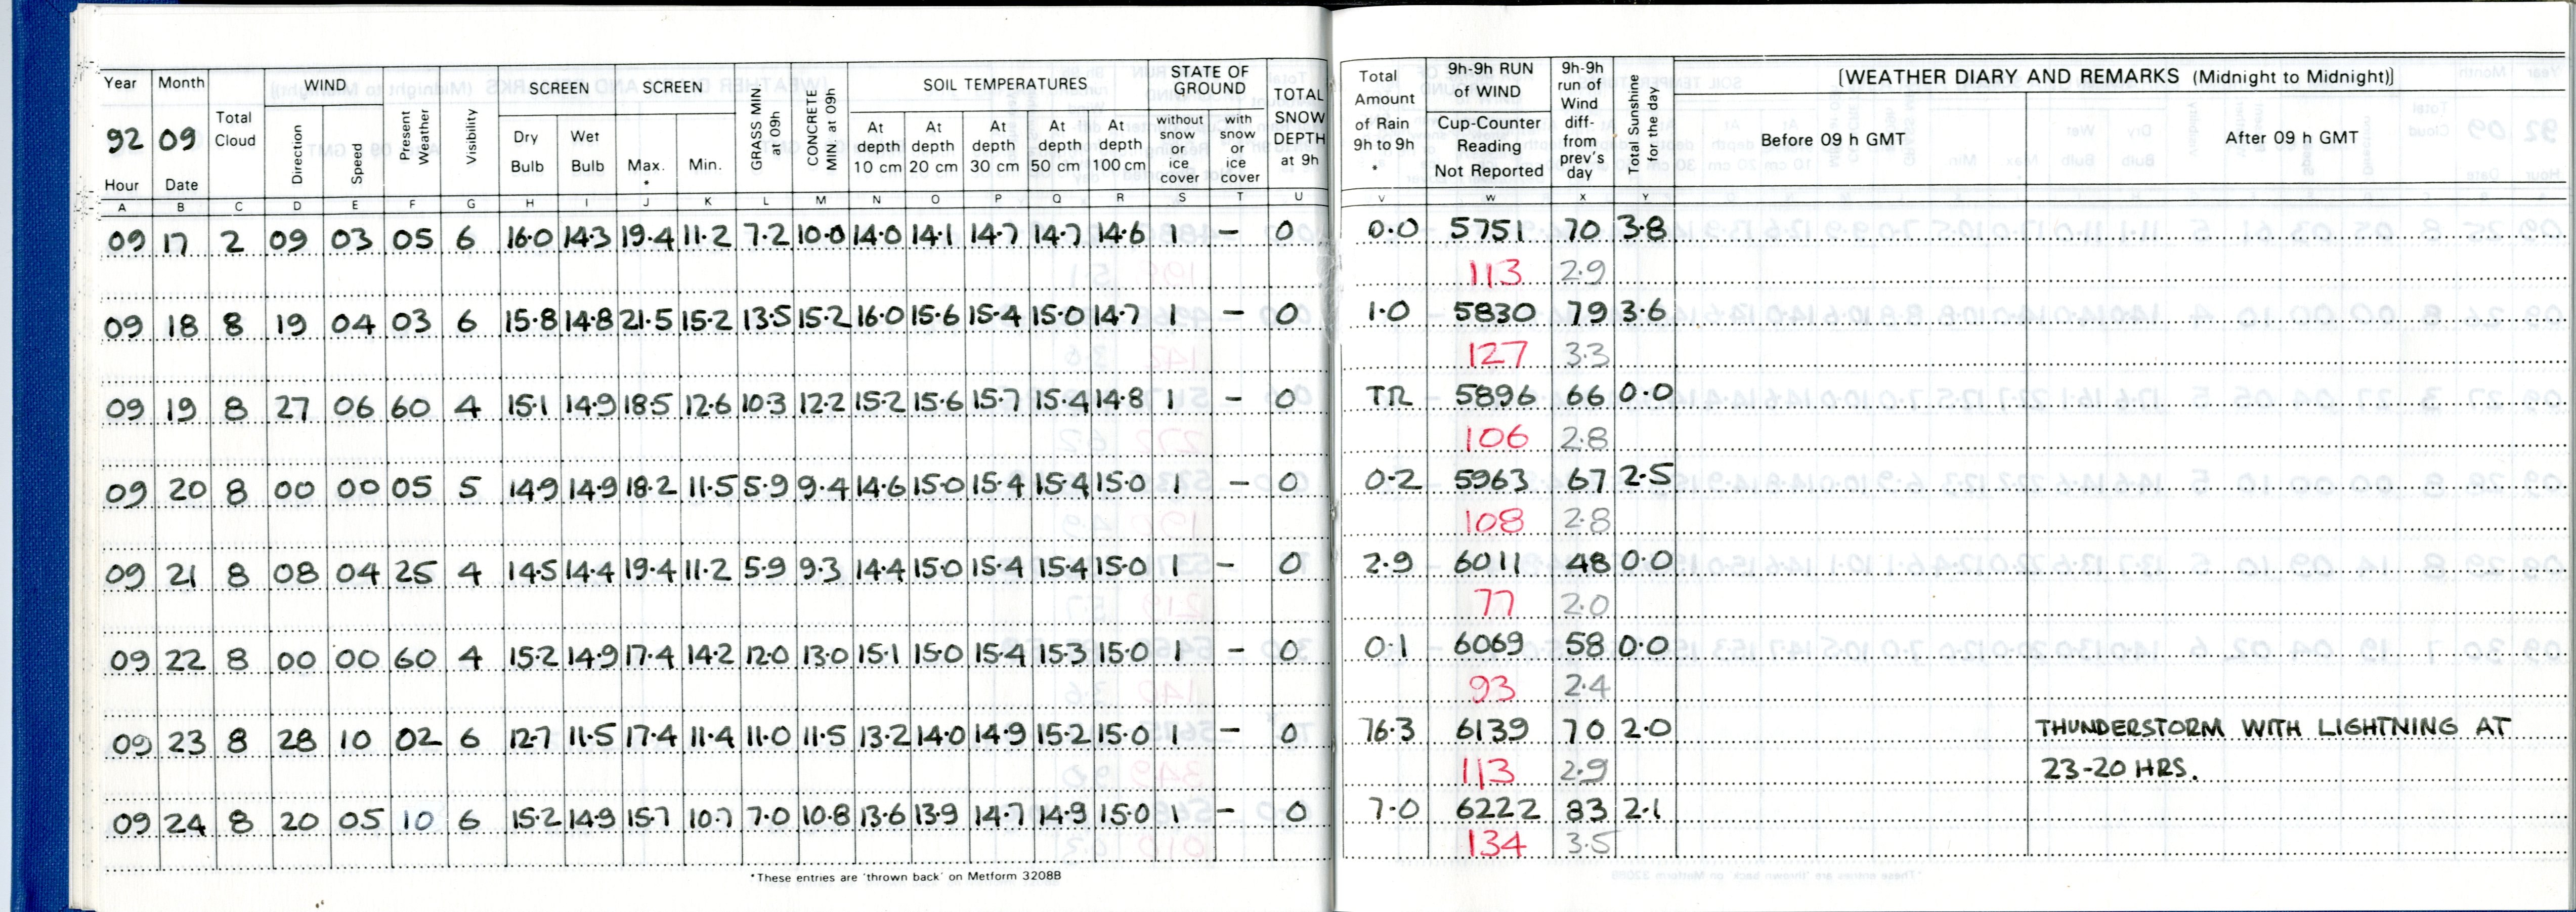 Year Month Total Cloud WIND Present Weather Visibility SCREEN SCREEN GRASS MIN at 09h CONCRETE MIN. at 09h SOIL TEMPERATURES STATE OF GROUND TOTAL SNOW DEPTH at 9h Total Amount of Rain 9h to 9h * 9h-9h RUN of WIND Cup-Counter Reading Not Reported 9h-9h run of Wind diff- from prev's day Total Sunshine for the day (WEATHER DIARY AND REMARKS (Midnight to Midnight))
92 09 Direction Speed Dry Bulb Wet Bulb Max. * Min. At depth 10 cm At depth 20 cm At depth 30 cm At depth 50 cm At depth 100 cm without snow or ice cover with snow or ice cover Before 09 h GMT After 09 h GMT
Hour Date
A B C D E F G H I J K L M N O P Q R S T U V W X Y
09 17 2 09 03 05 6 16.0 14.3 19.4 11.2 7.2 10.0 14.0 14.1 14.7 14.7 14.6 1 – 0 0.0 5751 70 3.8
113 2.9
09 18 8 19 04 03 6 15.8 14.8 21.5 15.2 13.5 15.2 16.0 15.6 15.4 15.0 14.7 1 – 0 1.0 5830 79 3.6
127 3.3
09 19 8 27 06 60 4 15.1 14.9 18.5 12.6 10.3 12.2 15.2 15.6 15.7 15.4 14.8 1 – 0 TR 5896 66 0.0
106 2.8
09 20 8 00 00 05 5 14.9 14.9 18.2 11.5 5.9 9.4 14.6 15.0 15.4 15.4 15.0 1 – 0 0.2 5963 67 2.5
108 2.8
09 21 8 08 04 25 4 14.5 14.4 19.4 11.2 5.9 9.3 14.4 15.0 15.4 15.4 15.0 1 – 0 2.9 6011 48 0.0
77 2.0
09 22 8 00 00 60 4 15.2 14.9 17.4 14.2 12.0 13.0 15.1 15.0 15.4 15.3 15.0 1 – 0 0.1 6069 58 0.0
93 2.4
09 23 8 28 10 02 6 12.7 11.5 17.4 11.4 11.0 11.5 13.2 14.0 14.9 15.2 15.0 1 – 0 76.3 6139 70 2.0 THUNDERSTORM WITH LIGHTNING AT
113 2.9 23-20 HRS.
09 24 8 20 05 10 6 15.2 14.9 15.7 10.7 7.0 10.8 13.6 13.9 14.7 14.9 15.0 1 – 0 7.0 6222 83 2.1
134 3.5
*These entries are 'thrown back' on Metform 3208B